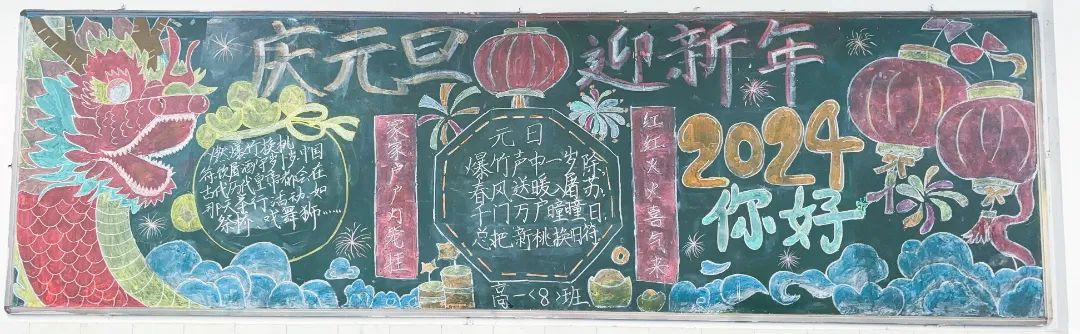 庆元旦
迎新年
燃爆竹换桃
符饮屠苏守岁中国
古代历代皇帝都会在
那天举行活动，如
祭拜、戏舞狮……
家家户户灯笼挂
元日
爆竹声中一岁除，
春风送暖入屠苏，
千门万户曈曈日，
总把新桃换旧符。
高一〈8〉班
红红火火喜气来
2024
你好